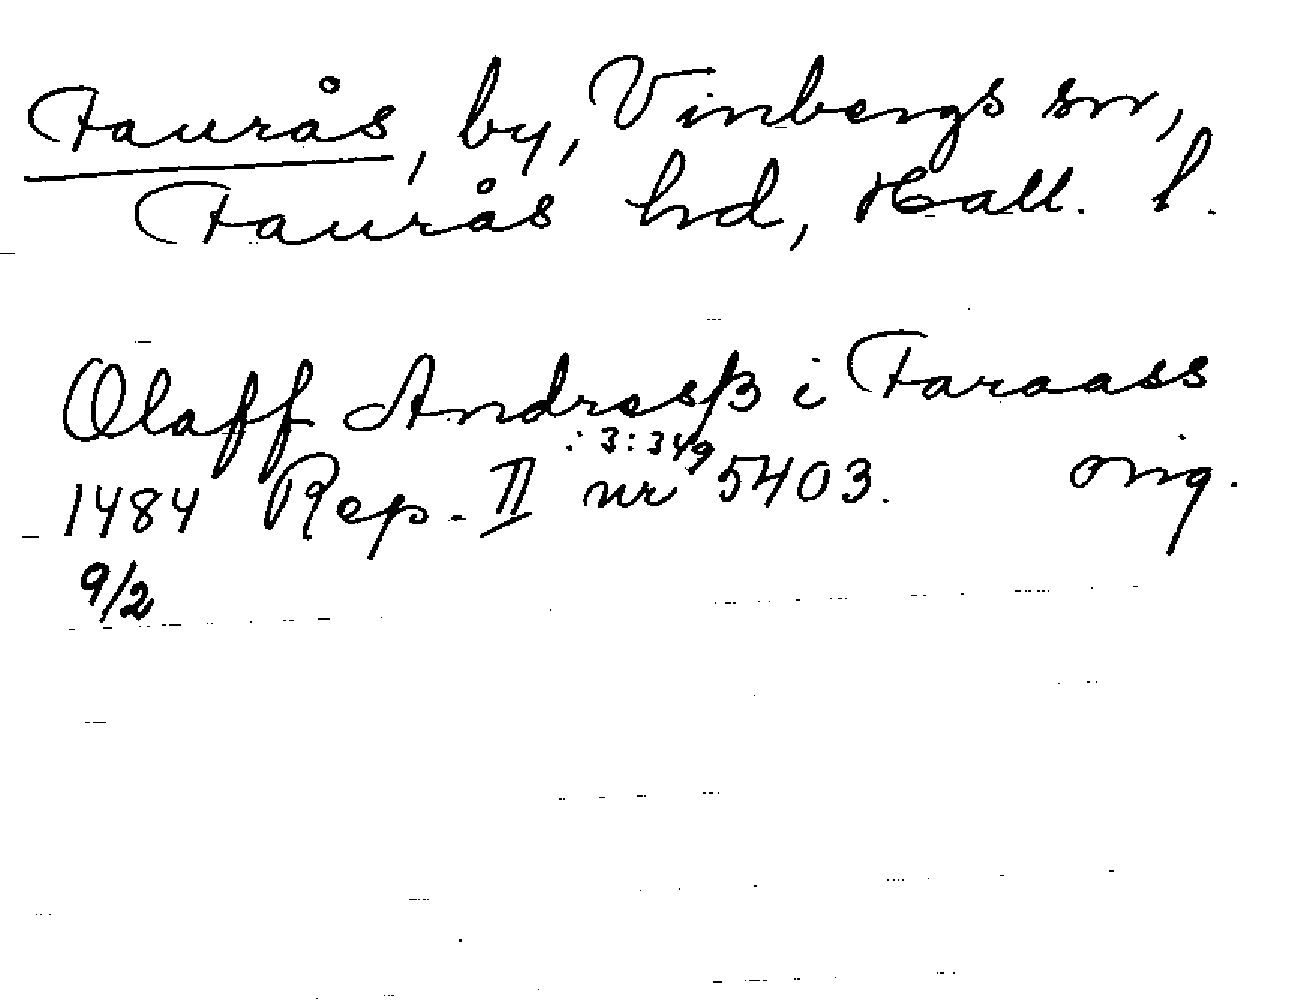 Faurås, by, Vinbergs sn,
Faurås hd, Hall. l.
Olaff Andresß i Faraass
:3:349
1484 Rep. II nr 5403. orig.
9/2